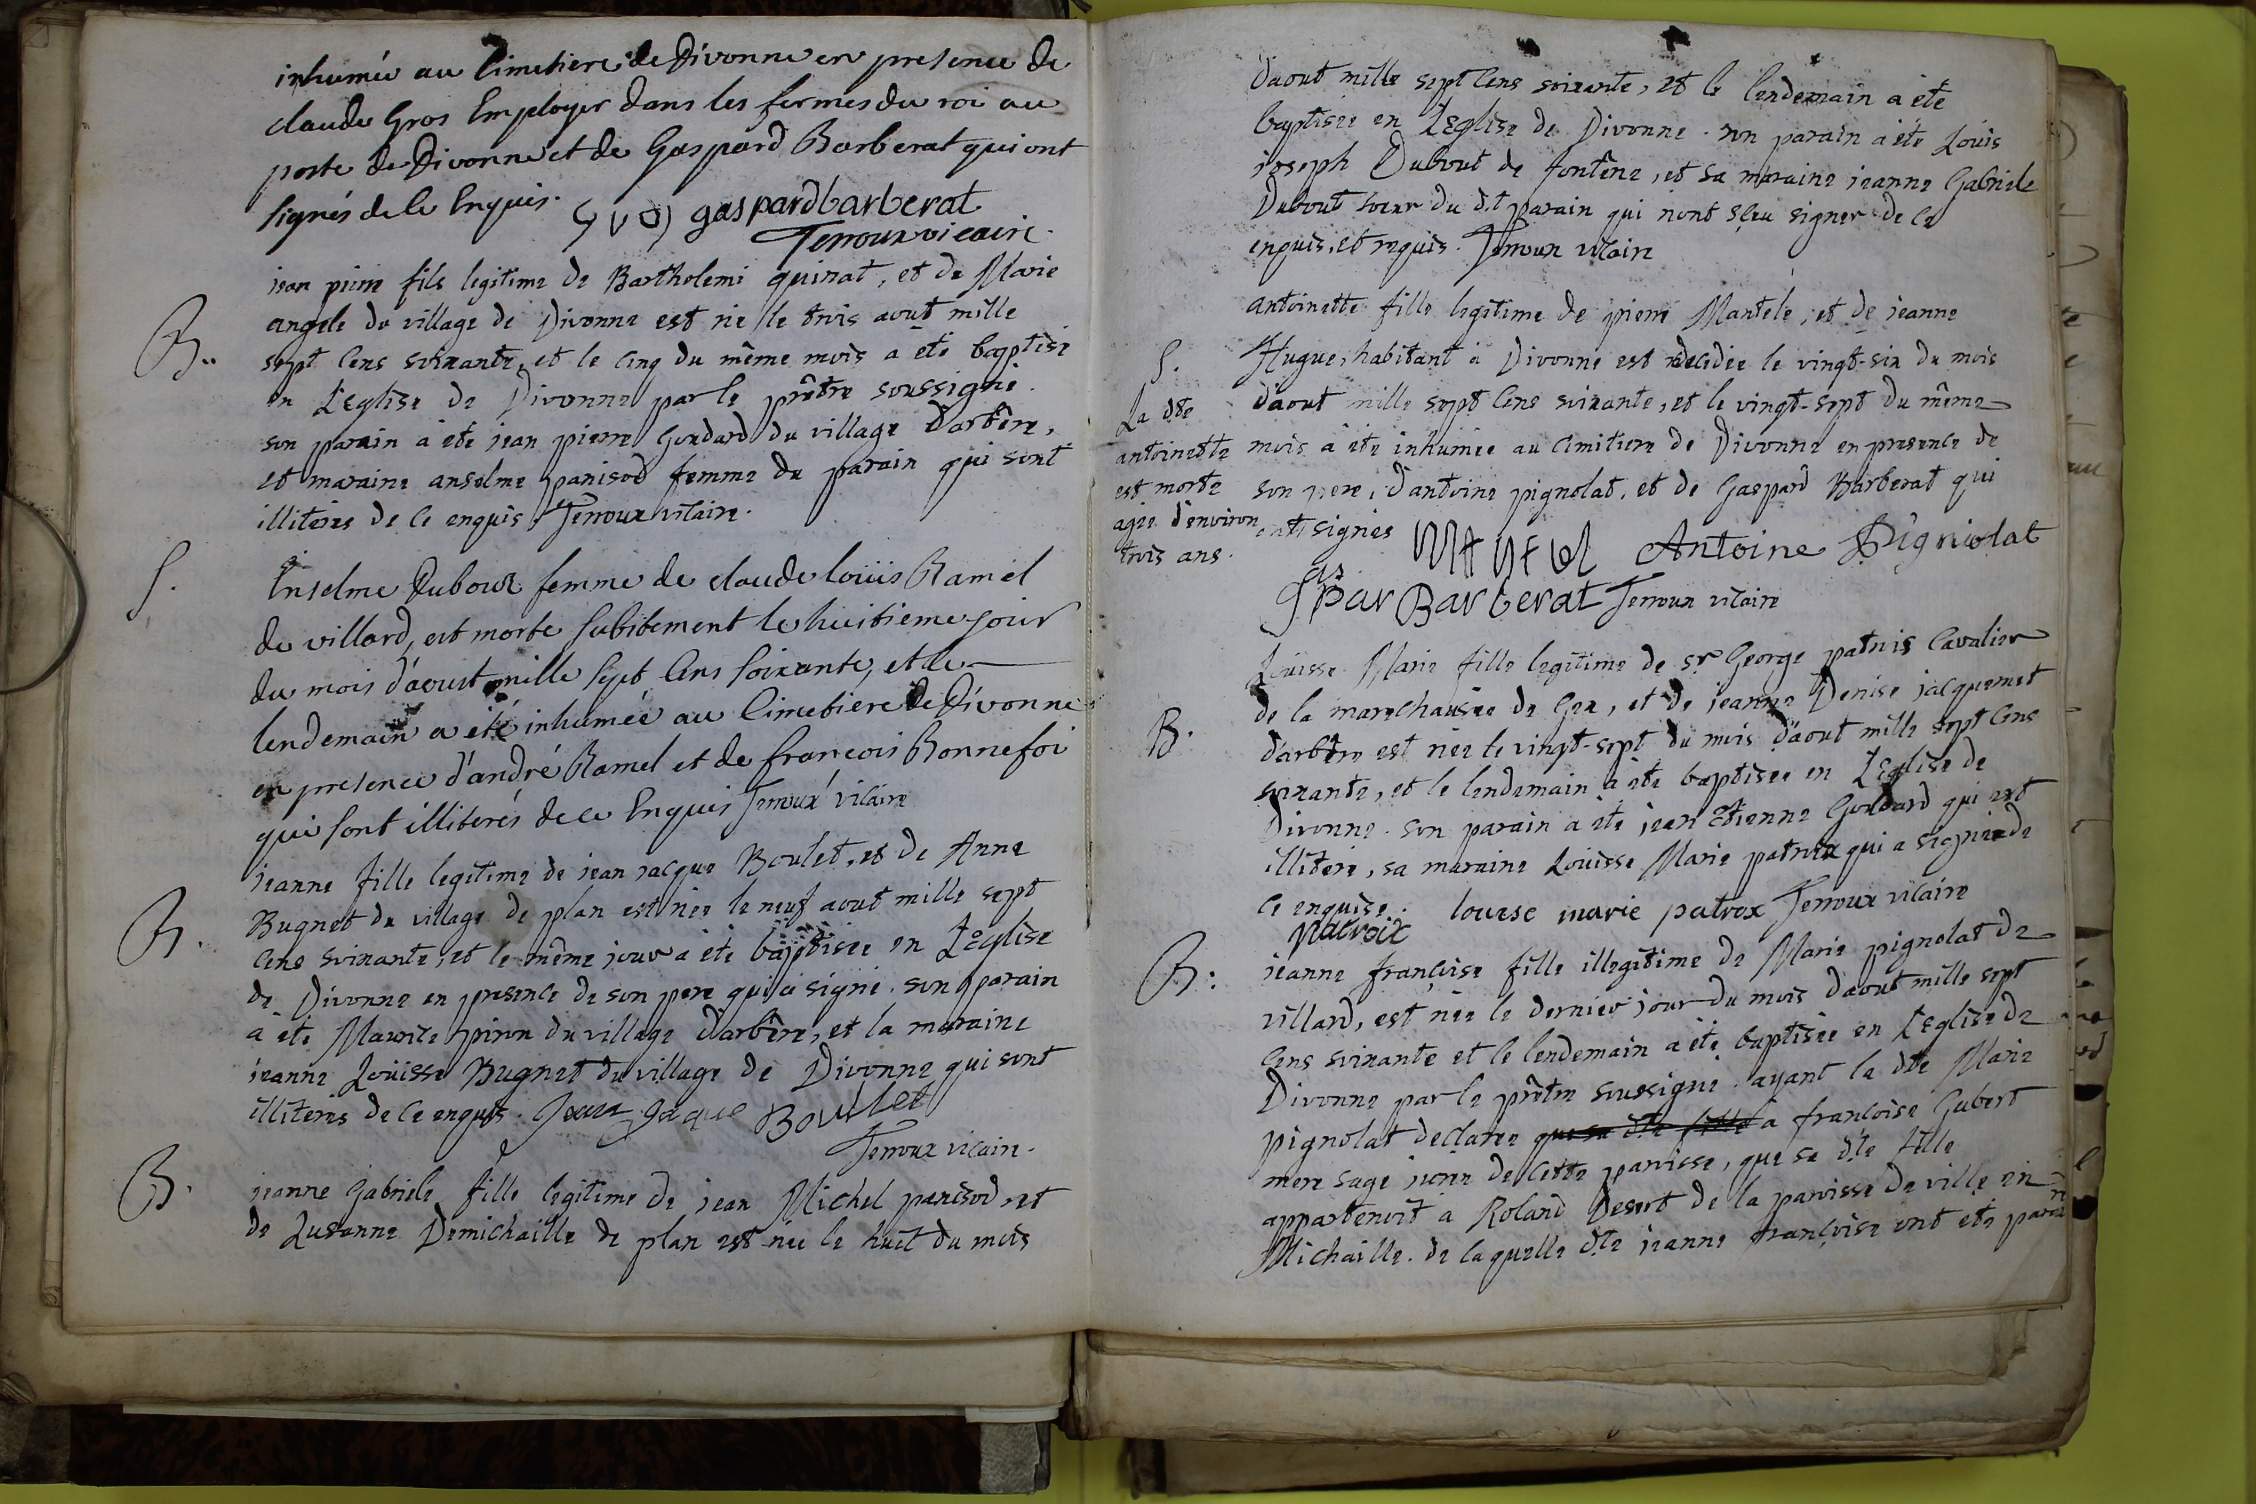 inhumée au Cimetiere de Divonne en presence de
claude Gros Employer dans les fermes du roi au
poste de Divonne et de Gaspard Barberat qui ont
signés de ce Enquis. gros gaspard barberat
Terroux vicaire.
B..
jean pierre fils legitime de Bartholemi quinat, et de Marie
angele du village de Divonne est né le trois aout mille
sept Cens soixante, et le cinq du même mois a été baptisé
en L'Eglise de Divonne par le prêtre soussigné.
son parain a été jean pierre Goudard du village d'arbêre,
et maraine anselme panisod femme du parain qui sont
illiterés de ce enquis. Terroux vicaire.
S.
Enselme Dubout femme de claude loüis Ramel
de villard, est morte subitement le huitieme jour
du mois d'aoust mille sept Cens soixante, et le
lendemain a été inhumée au Cimetiere de Divonne
en presence d'andré Ramel et de francois Bonnefoi
qui sont illiterés de ce Enquis Terroux vicaire
B.
jeanne fille legitime de jean jacque Boulet, et de Anne
Bugnet du village de plan est née le neuf aout mille sept
Cens soixante, et le même jour a été baptisée en L'Eglise
de Divonne en presence de son pere qui a signé. son parain
a été Maurice piron du village d'arbêre, et la maraine
jeanne Loüisse Bugnet du village de Divonne qui sont
illiterés de ce enquis. Jean Jaque Boulet
Terroux vicaire.
B.
jeanne Gabriele fille legitime de jean Michel panisod, et
de Susanne Demichaille de plan est née le huit du mois
d'aout mille sept Cens soixante, et le lendemain a été
baptisée en L'Eglise de Divonne. son parain a été Loüis
joseph Dubout de fontêne, et sa maraine jeanne Gabriele
Dubout soeur du dit parain qui n'ont sçeu signer de ce
enquis, et requis. Terroux vicaire
antoinette fille legitime de pierre Mantele, et de jeanne
S.
Hugue, habitant à Divonne est decedée le vingt-six du mois
d'aout mille sept Cens soixante, et le vingt-sept du même
mois a été inhumée au Cimitiere de Divonne en presence de
son pere, d'antoine pignolat, et de Gaspard Barberat qui
ont signés Antoine Pigniolat
La dte
antoinette
est morte
agée d'environ
trois ans.
gaspar Barberat Terroux vicaire
B.
Loüisse Marie fille legitime de sr George patrois Cavalier
de la marechausée de Gex, et de jeanne Denise jacquemet
d'arbêre est née le vingt-sept du mois d'aout mille sept Cens
soixante, et le lendemain a été baptisée en L'Eglise de
Divonne. son parain a été jean Etienne Goudard qui est
illiteré, sa maraine Loüisse Marie patroix qui a signé de
ce enquise. louise marie patrox Terroux vicaire
B.
jeanne françoise fille illegitime de Marie pignolat de
villard, est née le dernier jour du mois d'aout mille sept
Cens soixante et le lendemain a été baptisée en L'Eglise de
Divonne par le prêtre soussigné. ayant la dte Marie
pignolat declarée que sa dte fille à francoise Gubert
mere sage jurée de cette paroisse, que sa dte fille
appartenoit à Roland Desert de la paroisse de ville en
Michaille. de laquelle dte jeanne françoise ont été parain